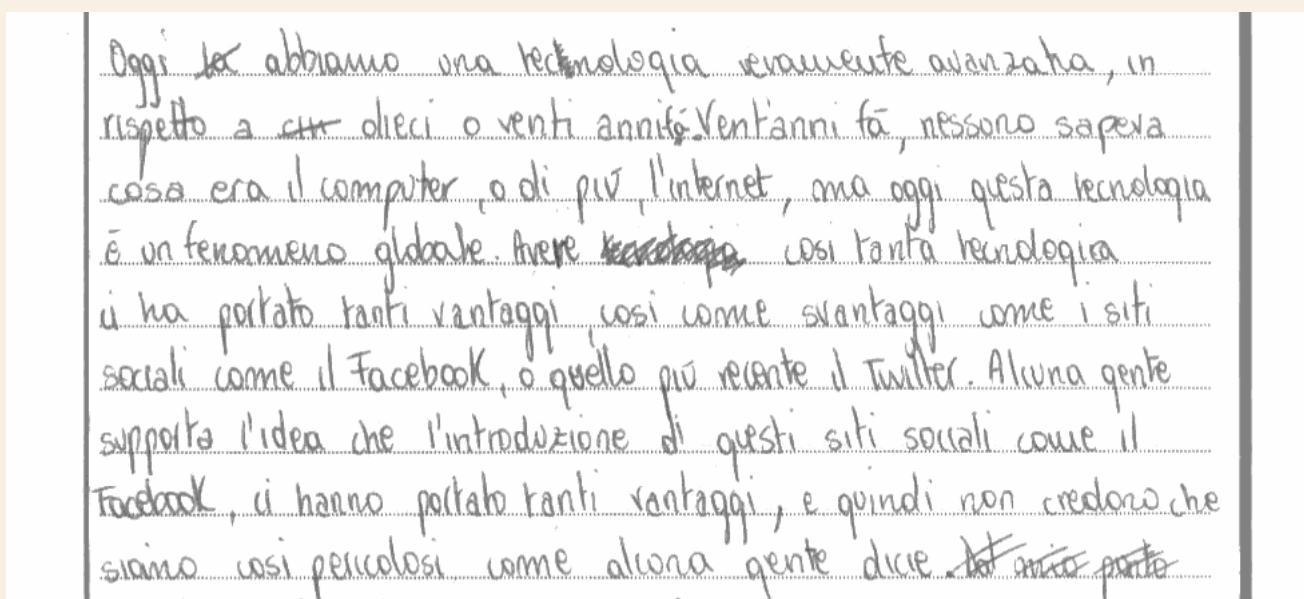 Oggi abbiamo una tecnologia veramente avanzata, in
rispetto a dieci o venti anni fá. Vent'anni fā, nessuno sapeva
cosa era il computer, o di piū, l'internet, ma oggi questa tecnologia
ē un fenomeno globale. Avere cosi tanta tecnologica
ci ha portato tanti vantaggi, cosi come svantaggi come i siti
sociali come il Facebook, o quello piū recente il Twitter. Alcuna gente
supporta l'idea che l'introduzione di questi siti sociali come il
Facebook, ci hanno portato tanti vantaggi, e quindi non credono che
siamo cosi pericolosi come alcuna gente dicie.